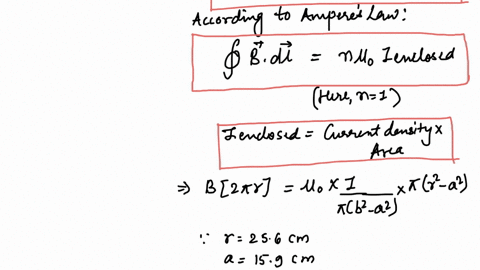 According to Ampere's Law:
∮ B⃗·dl⃗ = nμ₀ Ienclosed
(Here, n=1)
Ienclosed = Current density ×
Area
⇒ B[2πr] = μ₀ × I/π(b²-a²) × π(r²-a²)
∵ r = 25.6 cm
a = 15.9 cm